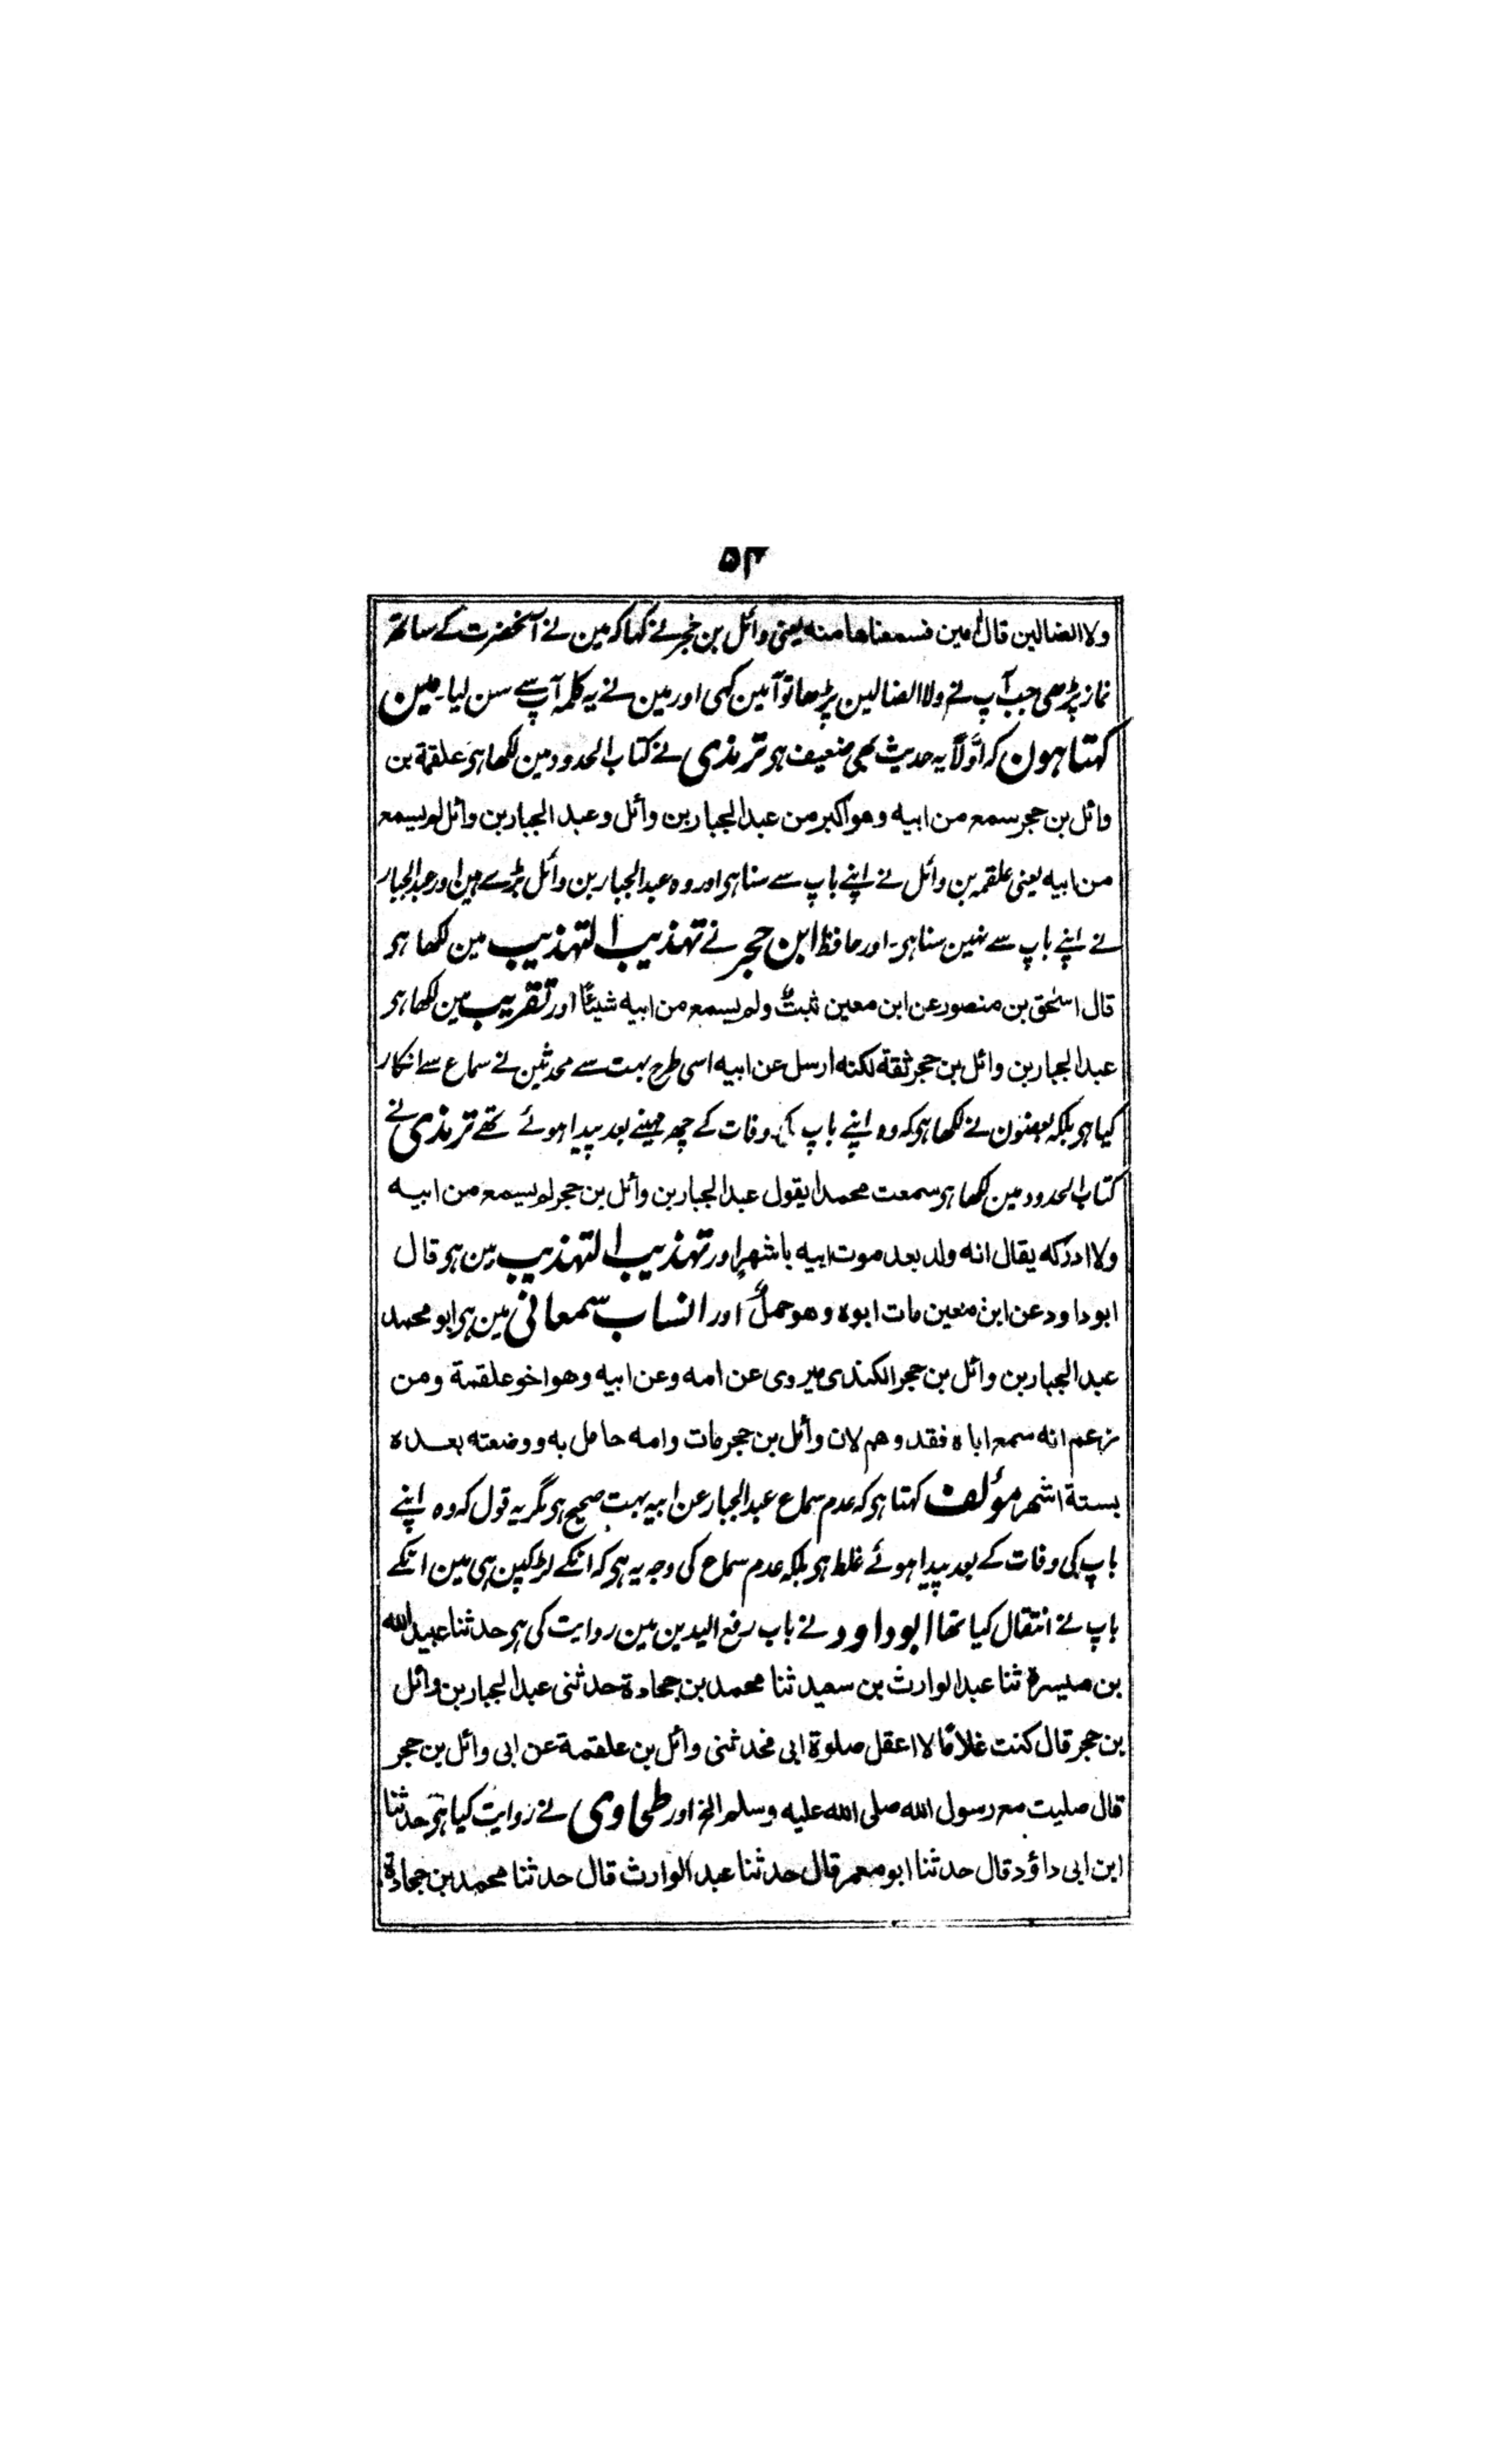 ۵۳
ولا الضالین قال آمین فسمعناها منه یعنی وائل بن حجر نے کہا کہ مین نے آنحضرت کے ساتھ
نماز پڑھی جب آپ نے ولا الضالین پڑھا تو آمین کہی اور مین نے یہ کلمہ آپ سے سن لیا۔ مین
کہتا ہون کہ اوّلاً یہ حدیث بھی ضعیف ہو ترمذی نے کتاب الحدود مین لکھا ہو علقمة بن
وائل بن حجر سمع من ابیه وهو اکبر من عبد الجبار بن وائل وعبد الجبار بن وائل لم یسمع
من ابیه یعنی علقمہ بن وائل نے اپنے باپ سے سنا ہی اور وہ عبد الجبار بن وائل بڑے ہین اور عبد الجبار
نے اپنے باپ سے نہین سنا ہی۔ اور حافظ ابن حجر نے تہذیب التہذیب مین لکھا ہو
قال اسحٰق بن منصور عن ابن معین ثبتٌ ولم یسمع من ابیه شیئًا اور تقریب مین لکھا ہو
عبد الجبار بن وائل بن حجر ثقة لکنه ارسل عن ابیه اسی طرح بہت سے محدثین نے سماع سے انکار
کیا ہو بلکہ بعضون نے لکھا ہو کہ وہ اپنے باپ کی وفات کے چھ مہینے بعد پیدا ہوئے تھے ترمذی نے
کتاب الحدود مین لکھا ہو سمعت محمدا یقول عبد الجبار بن وائل بن حجر لم یسمع من ابیه
ولا ادرکه یقال انه ولد بعد موت ابیه باشهرٍ اور تہذیب التہذیب مین ہو قال
ابو داود عن ابن معین مات ابوه وهو حملٌ اور انساب سمعانی مین ہو ابو محمد
عبد الجبار بن وائل بن حجر الکندی یروی عن امه وعن ابیه وهو اخو علقمة ومن
زعم انه سمع اباه فقد وهم لان وائل بن حجر مات وامه حامل به ووضعته بعده
بستة اشهر مؤلف کہتا ہو کہ عدم سماع عبد الجبار عن ابیہ بہت صحیح ہو مگر یہ قول کہ وہ اپنے
باپ کی وفات کے بعد پیدا ہوئے غلط ہو بلکہ عدم سماع کی وجہ یہ ہو کہ انکے لڑکپن ہی مین انکے
باپ نے انتقال کیا تھا ابو داود نے باب رفع الیدین مین روایت کی ہو حدثنا عبید الله
بن میسرة ثنا عبد الوارث بن سعید ثنا محمد بن جحادة حدثنی عبد الجبار بن وائل
بن حجر قال کنت غلامًا لا اعقل صلوة ابی فحدثنی وائل بن علقمة عن ابی وائل بن حجر
قال صلیت مع رسول الله صلی الله علیه وسلم الخ اور طحاوی نے روایت کیا ہو حدثنا
ابن ابی داؤد قال حدثنا ابو معمر قال حدثنا عبد الوارث قال حدثنا محمد بن جحادة